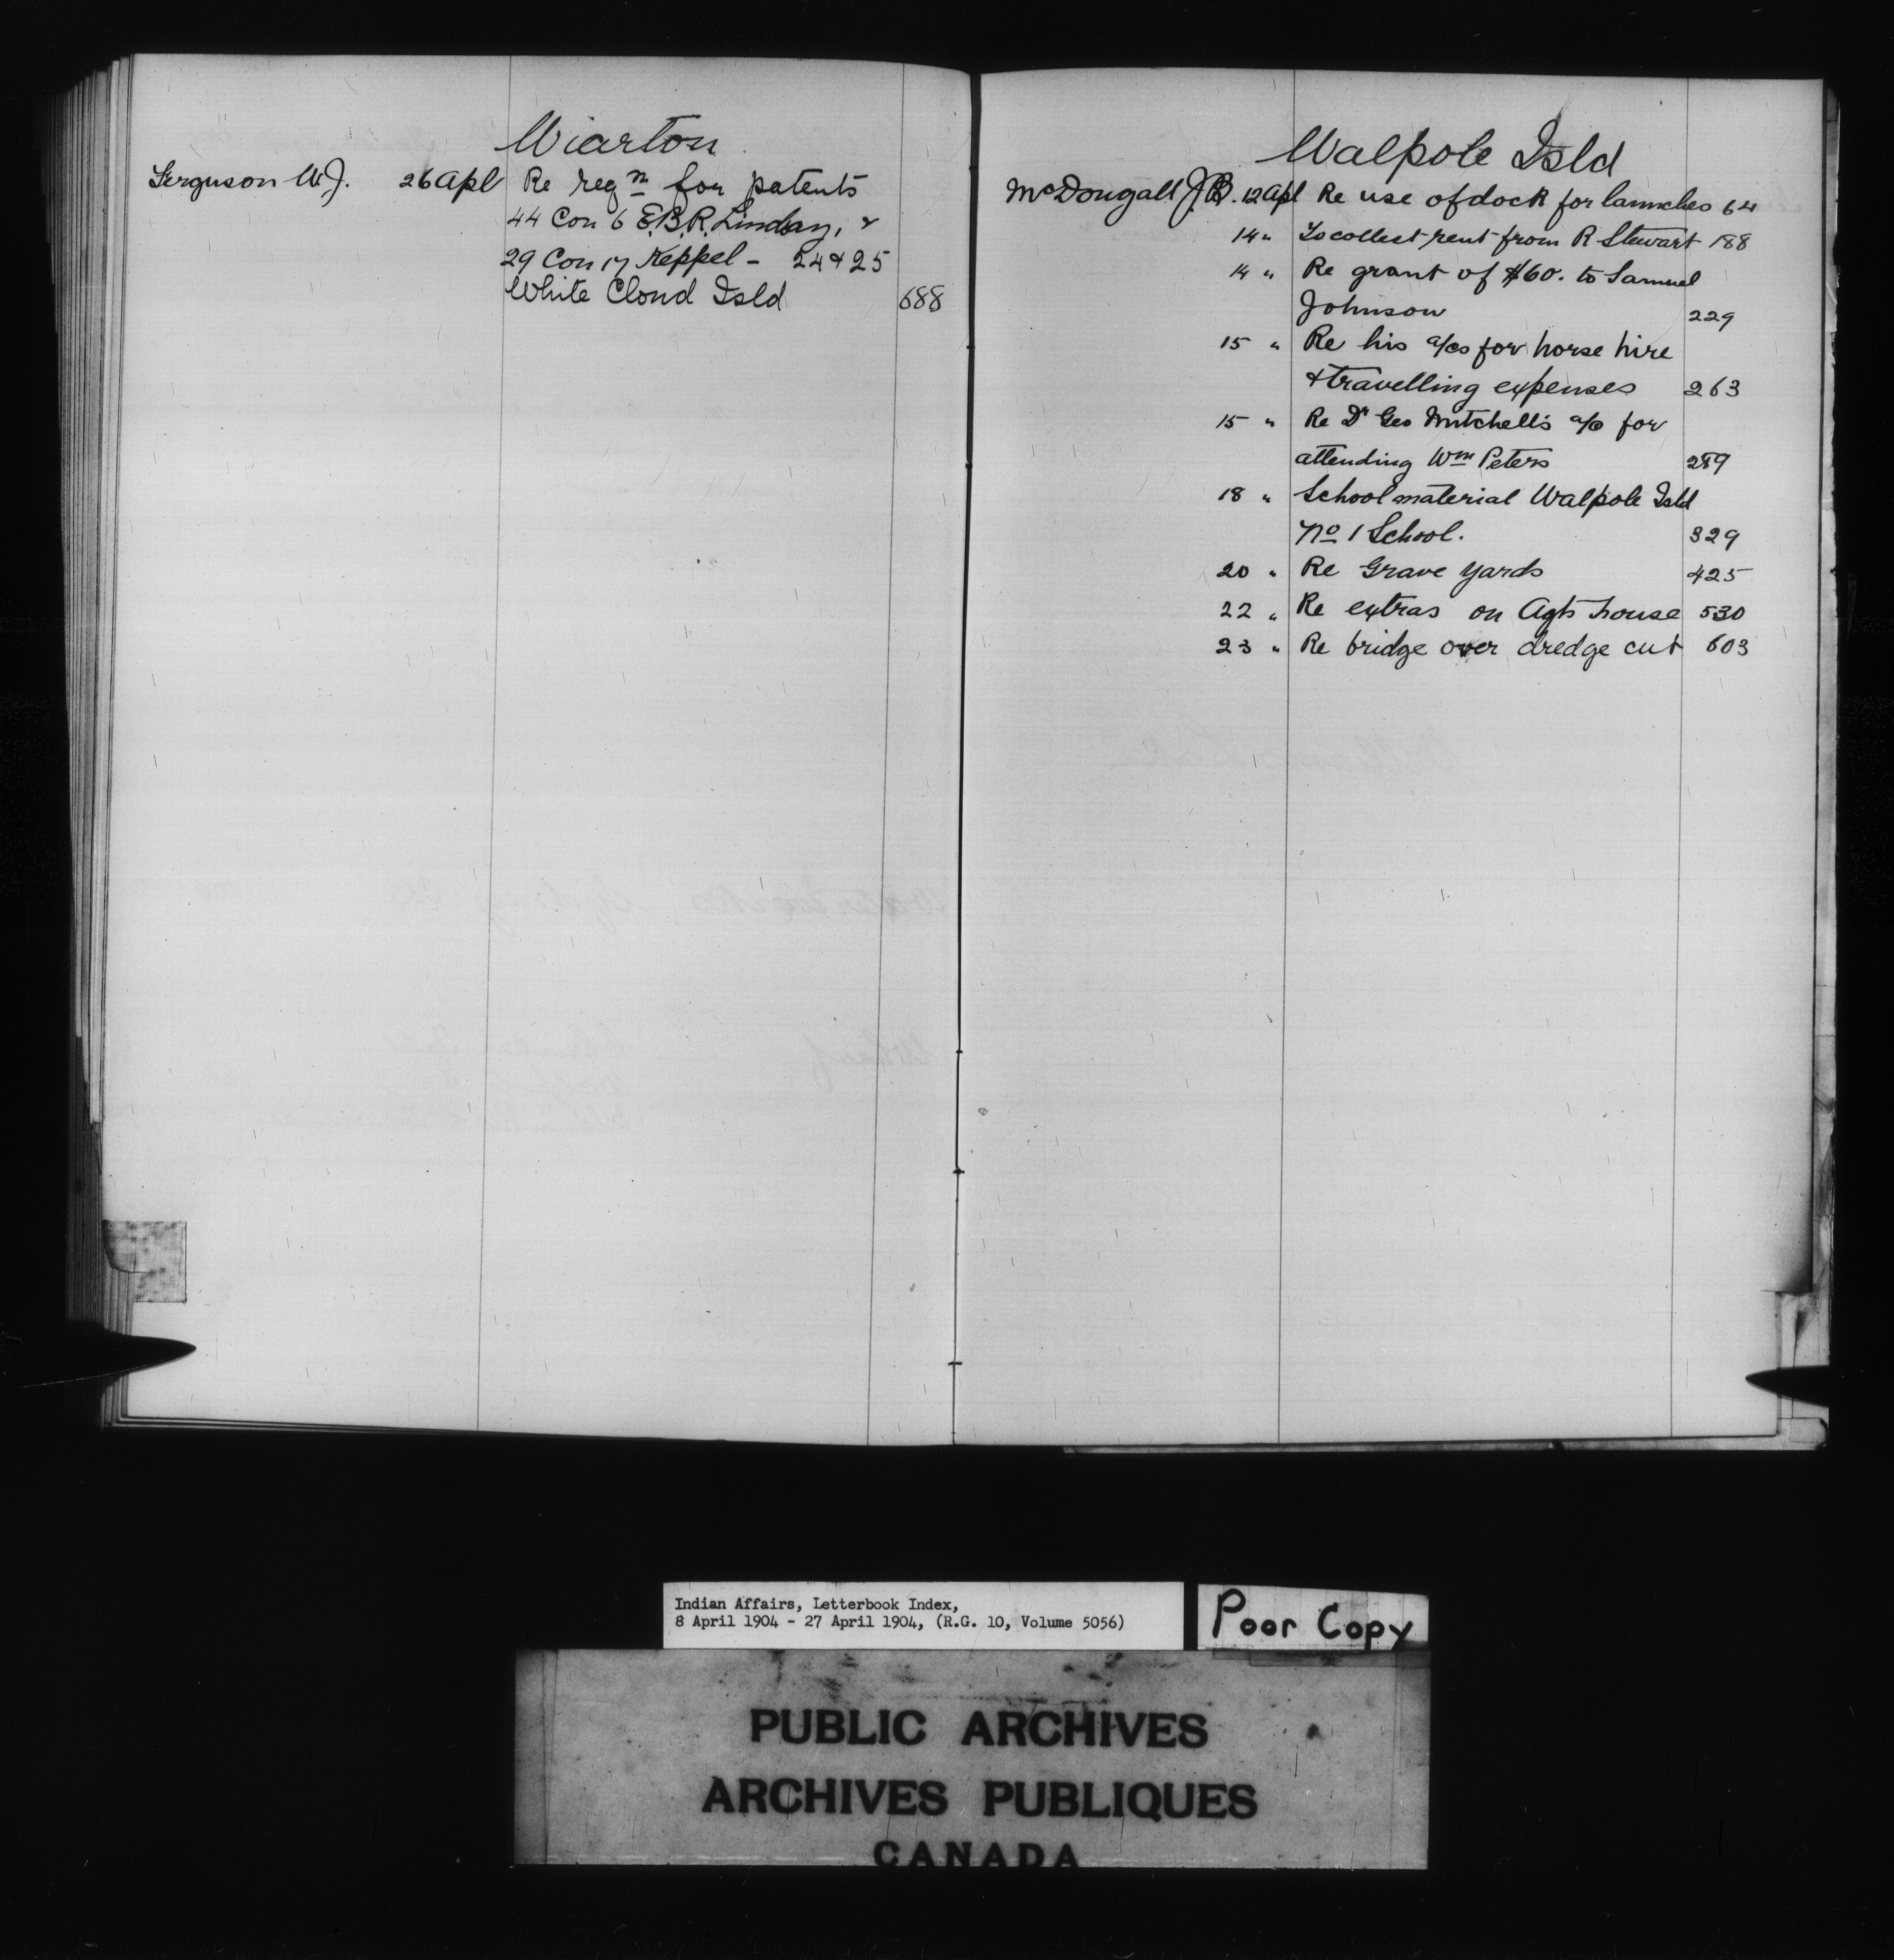 Wiarton
Ferguson W.J. 26 Apl Re regn for patents
44 Con 6 E.B.R. Lindsay, &
29 Con 17 Keppel - 24 & 25
White Cloud Isld 688
Walpole Isld
McDougall J.B. 12 Apl Re use of dock for launches 64
14 " To collect rent from R Stewart 188
14 " Re grant of $60. to Samuel
Johnson 229
15 " Re his a/cs for horse hire
& travelling expenses 263
15 " Re Dr Geo Mitchell's a/c for
attending Wm Peters 289
18 " School material Walpole Isld
No 1 School. 329
20 " Re Grave Yards 425
22 " Re extras on Agts house 530
23 " Re bridge over dredge cut 603
Indian Affairs, Letterbook Index,
8 April 1904 - 27 April 1904, (R.G. 10, Volume 5056)
Poor Copy
PUBLIC ARCHIVES
ARCHIVES PUBLIQUES
CANADA